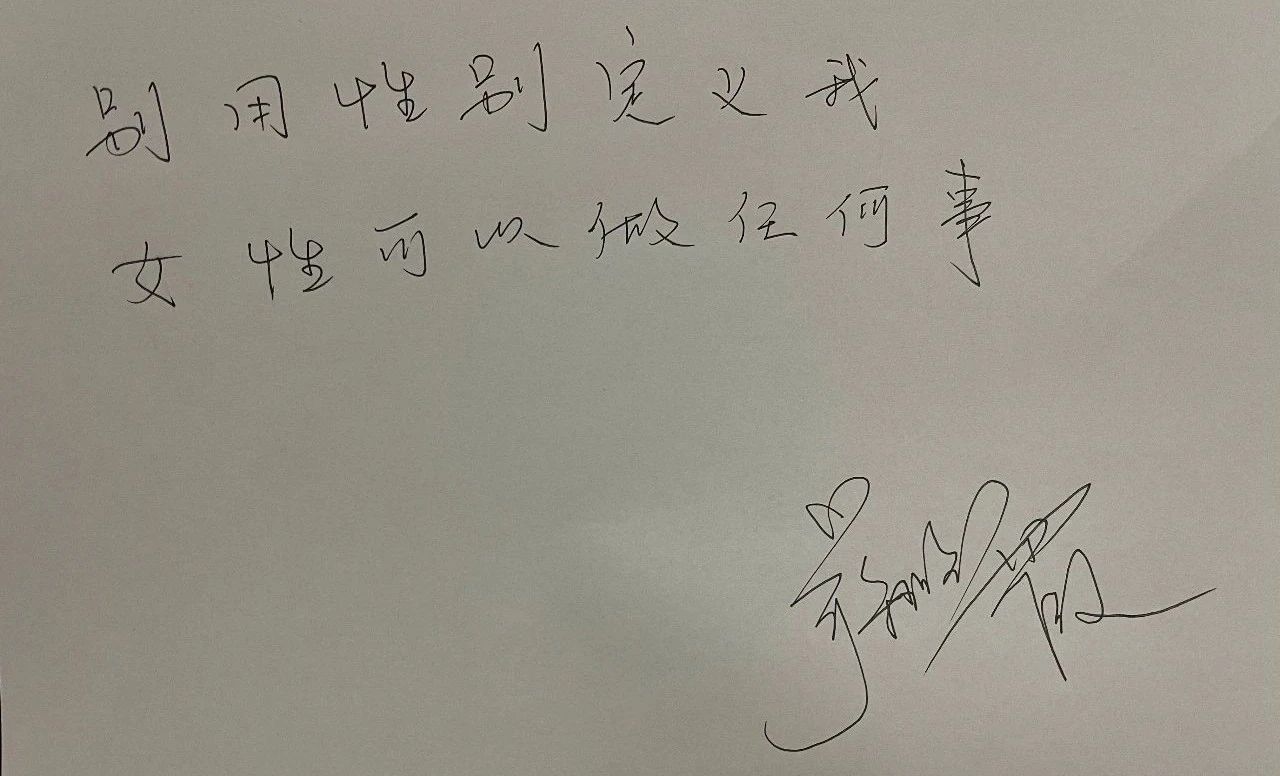 别用性别定义我
女性可以做任何事